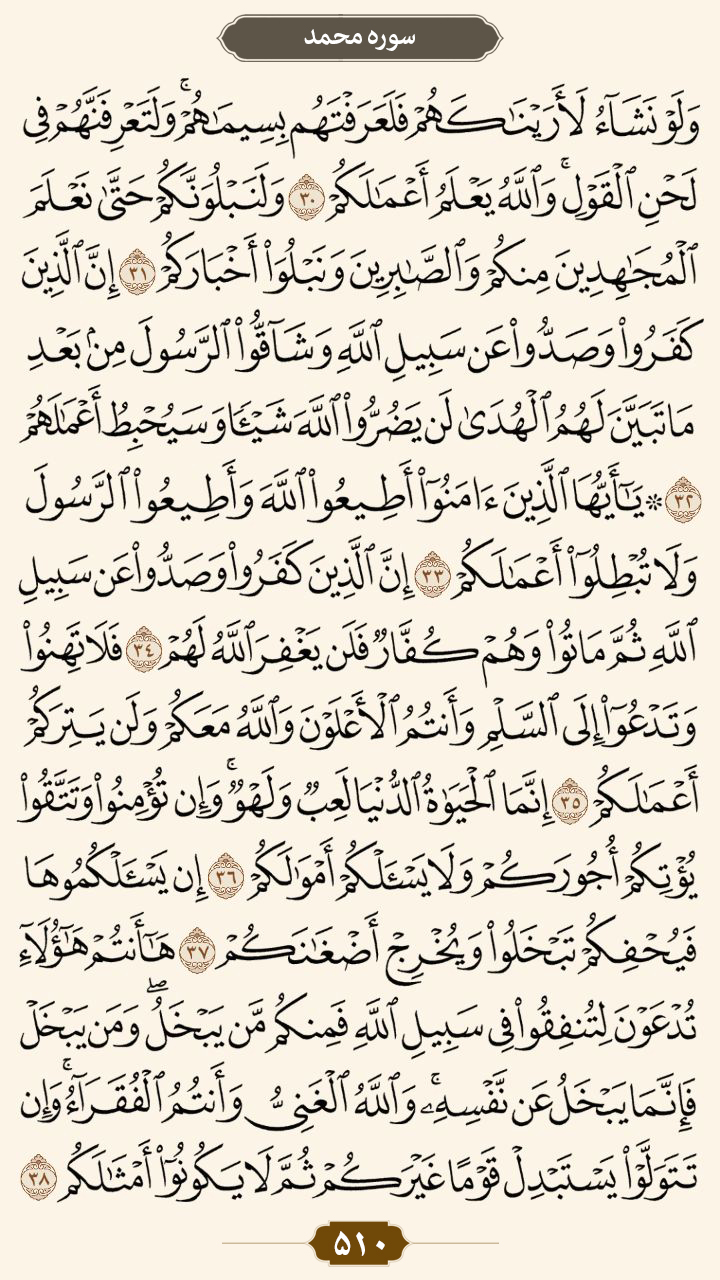 سوره محمد
وَلَوۡ نَشَآءُ لَأَرَيۡنَٰكَهُمۡ فَلَعَرَفۡتَهُم بِسِيمَٰهُمۡۚ وَلَتَعۡرِفَنَّهُمۡ فِي
لَحۡنِ ٱلۡقَوۡلِۚ وَٱللَّهُ يَعۡلَمُ أَعۡمَٰلَكُمۡ ٣٠ وَلَنَبۡلُوَنَّكُمۡ حَتَّىٰ نَعۡلَمَ
ٱلۡمُجَٰهِدِينَ مِنكُمۡ وَٱلصَّٰبِرِينَ وَنَبۡلُوَاْ أَخۡبَارَكُمۡ ٣١ إِنَّ ٱلَّذِينَ
كَفَرُواْ وَصَدُّواْ عَن سَبِيلِ ٱللَّهِ وَشَآقُّواْ ٱلرَّسُولَ مِنۢ بَعۡدِ
مَا تَبَيَّنَ لَهُمُ ٱلۡهُدَىٰ لَن يَضُرُّواْ ٱللَّهَ شَيۡـٔٗا وَسَيُحۡبِطُ أَعۡمَٰلَهُمۡ
٣٢ ۞ يَٰٓأَيُّهَا ٱلَّذِينَ ءَامَنُوٓاْ أَطِيعُواْ ٱللَّهَ وَأَطِيعُواْ ٱلرَّسُولَ
وَلَا تُبۡطِلُوٓاْ أَعۡمَٰلَكُمۡ ٣٣ إِنَّ ٱلَّذِينَ كَفَرُواْ وَصَدُّواْ عَن سَبِيلِ
ٱللَّهِ ثُمَّ مَاتُواْ وَهُمۡ كُفَّارٞ فَلَن يَغۡفِرَ ٱللَّهُ لَهُمۡ ٣٤ فَلَا تَهِنُواْ
وَتَدۡعُوٓاْ إِلَى ٱلسَّلۡمِ وَأَنتُمُ ٱلۡأَعۡلَوۡنَ وَٱللَّهُ مَعَكُمۡ وَلَن يَتِرَكُمۡ
أَعۡمَٰلَكُمۡ ٣٥ إِنَّمَا ٱلۡحَيَوٰةُ ٱلدُّنۡيَا لَعِبٞ وَلَهۡوٞۚ وَإِن تُؤۡمِنُواْ وَتَتَّقُواْ
يُؤۡتِكُمۡ أُجُورَكُمۡ وَلَا يَسۡـَٔلۡكُمۡ أَمۡوَٰلَكُمۡ ٣٦ إِن يَسۡـَٔلۡكُمُوهَا
فَيُحۡفِكُمۡ تَبۡخَلُواْ وَيُخۡرِجۡ أَضۡغَٰنَكُمۡ ٣٧ هَٰٓأَنتُمۡ هَٰٓؤُلَآءِ
تُدۡعَوۡنَ لِتُنفِقُواْ فِي سَبِيلِ ٱللَّهِ فَمِنكُم مَّن يَبۡخَلُۖ وَمَن يَبۡخَلۡ
فَإِنَّمَا يَبۡخَلُ عَن نَّفۡسِهِۦۚ وَٱللَّهُ ٱلۡغَنِيُّ وَأَنتُمُ ٱلۡفُقَرَآءُۚ وَإِن
تَتَوَلَّوۡاْ يَسۡتَبۡدِلۡ قَوۡمًا غَيۡرَكُمۡ ثُمَّ لَا يَكُونُوٓاْ أَمۡثَٰلَكُم ٣٨
۵۱۰